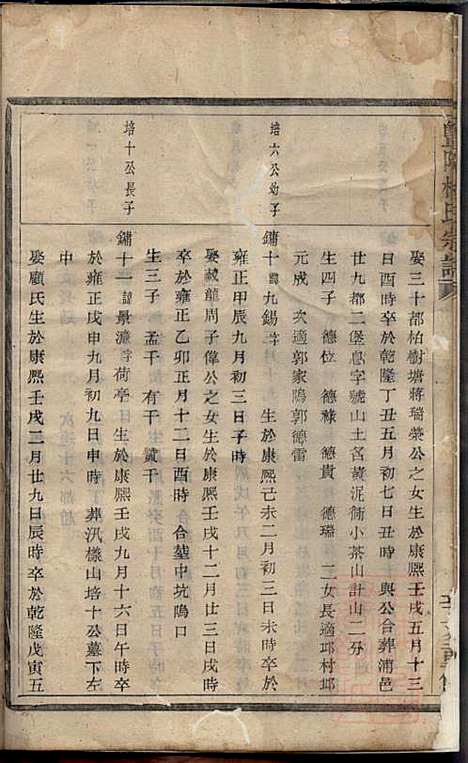 暨陽楊氏宗譜
娶三十都柏樹塘蔣瑞榮公之女生於康熙壬戌五月十三
日酉時卒於乾隆丁丑五月初七日丑時 與公合葬浦邑
廿九都二堡息字號山土名黃泥衕小茶山計山二分
生四子 德位 德祿 德貴 德瑞 二女長適邱村邱
元成 次適郭家鳴郭德雷
培六公幼子
鏞十 諱九錫字 生於康熙己未二月初三日未時卒於
雍正甲辰九月初三日子時
娶藏龍周子偉公之女生於康熙壬戌十二月廿三日戌時
卒於雍正乙卯正月十二日酉時 合塟中坑塢口
生三子 孟千 有千 貳千
培十公長子
鏞十一 諱景濂字荷亭 生於康熙壬戌九月十六日午時卒
於雍正戊申九月初九日申時 葬汎樣山培十公墓下左
中
娶顧氏生於康熙壬戌二月廿九日辰時卒於乾隆戊寅五